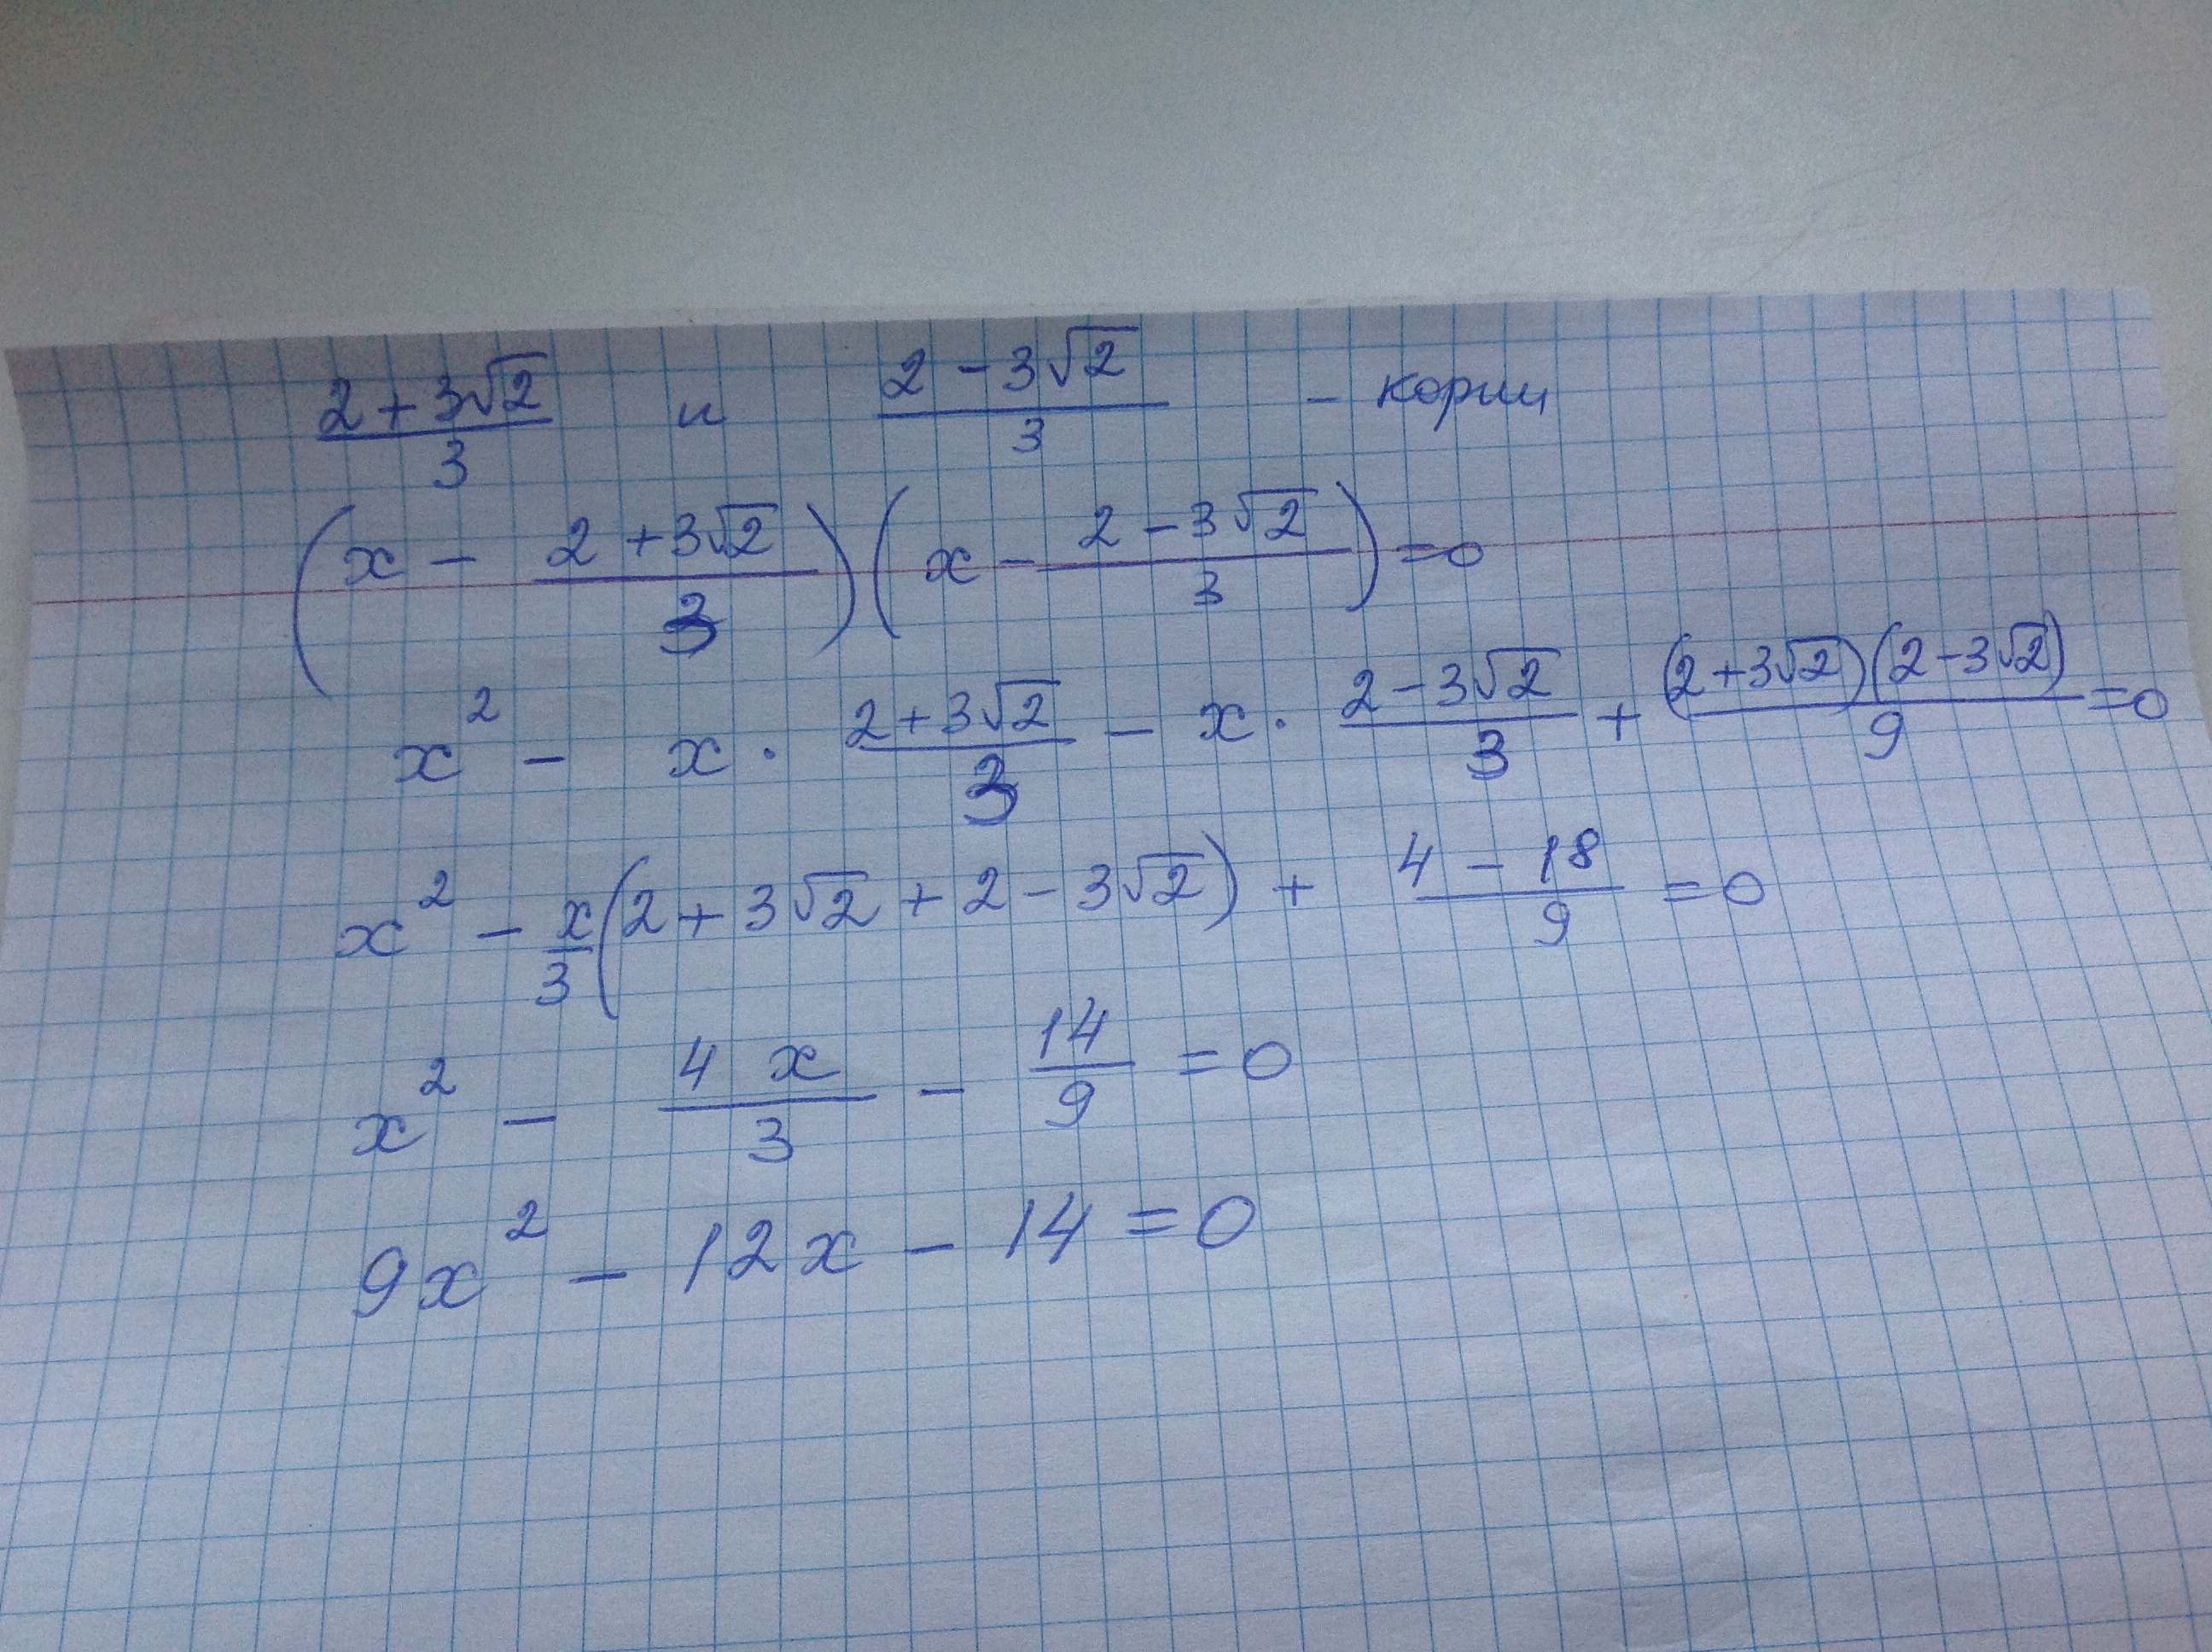 (2+3√2)/3 и (2-3√2)/3 - корни
(x - (2+3√2)/3)(x - (2-3√2)/3) = 0
x² - x · (2+3√2)/3 - x · (2-3√2)/3 + (2+3√2)(2-3√2)/9 = 0
x² - x/3(2+3√2+2-3√2) + (4-18)/9 = 0
x² - 4x/3 - 14/9 = 0
9x² - 12x - 14 = 0